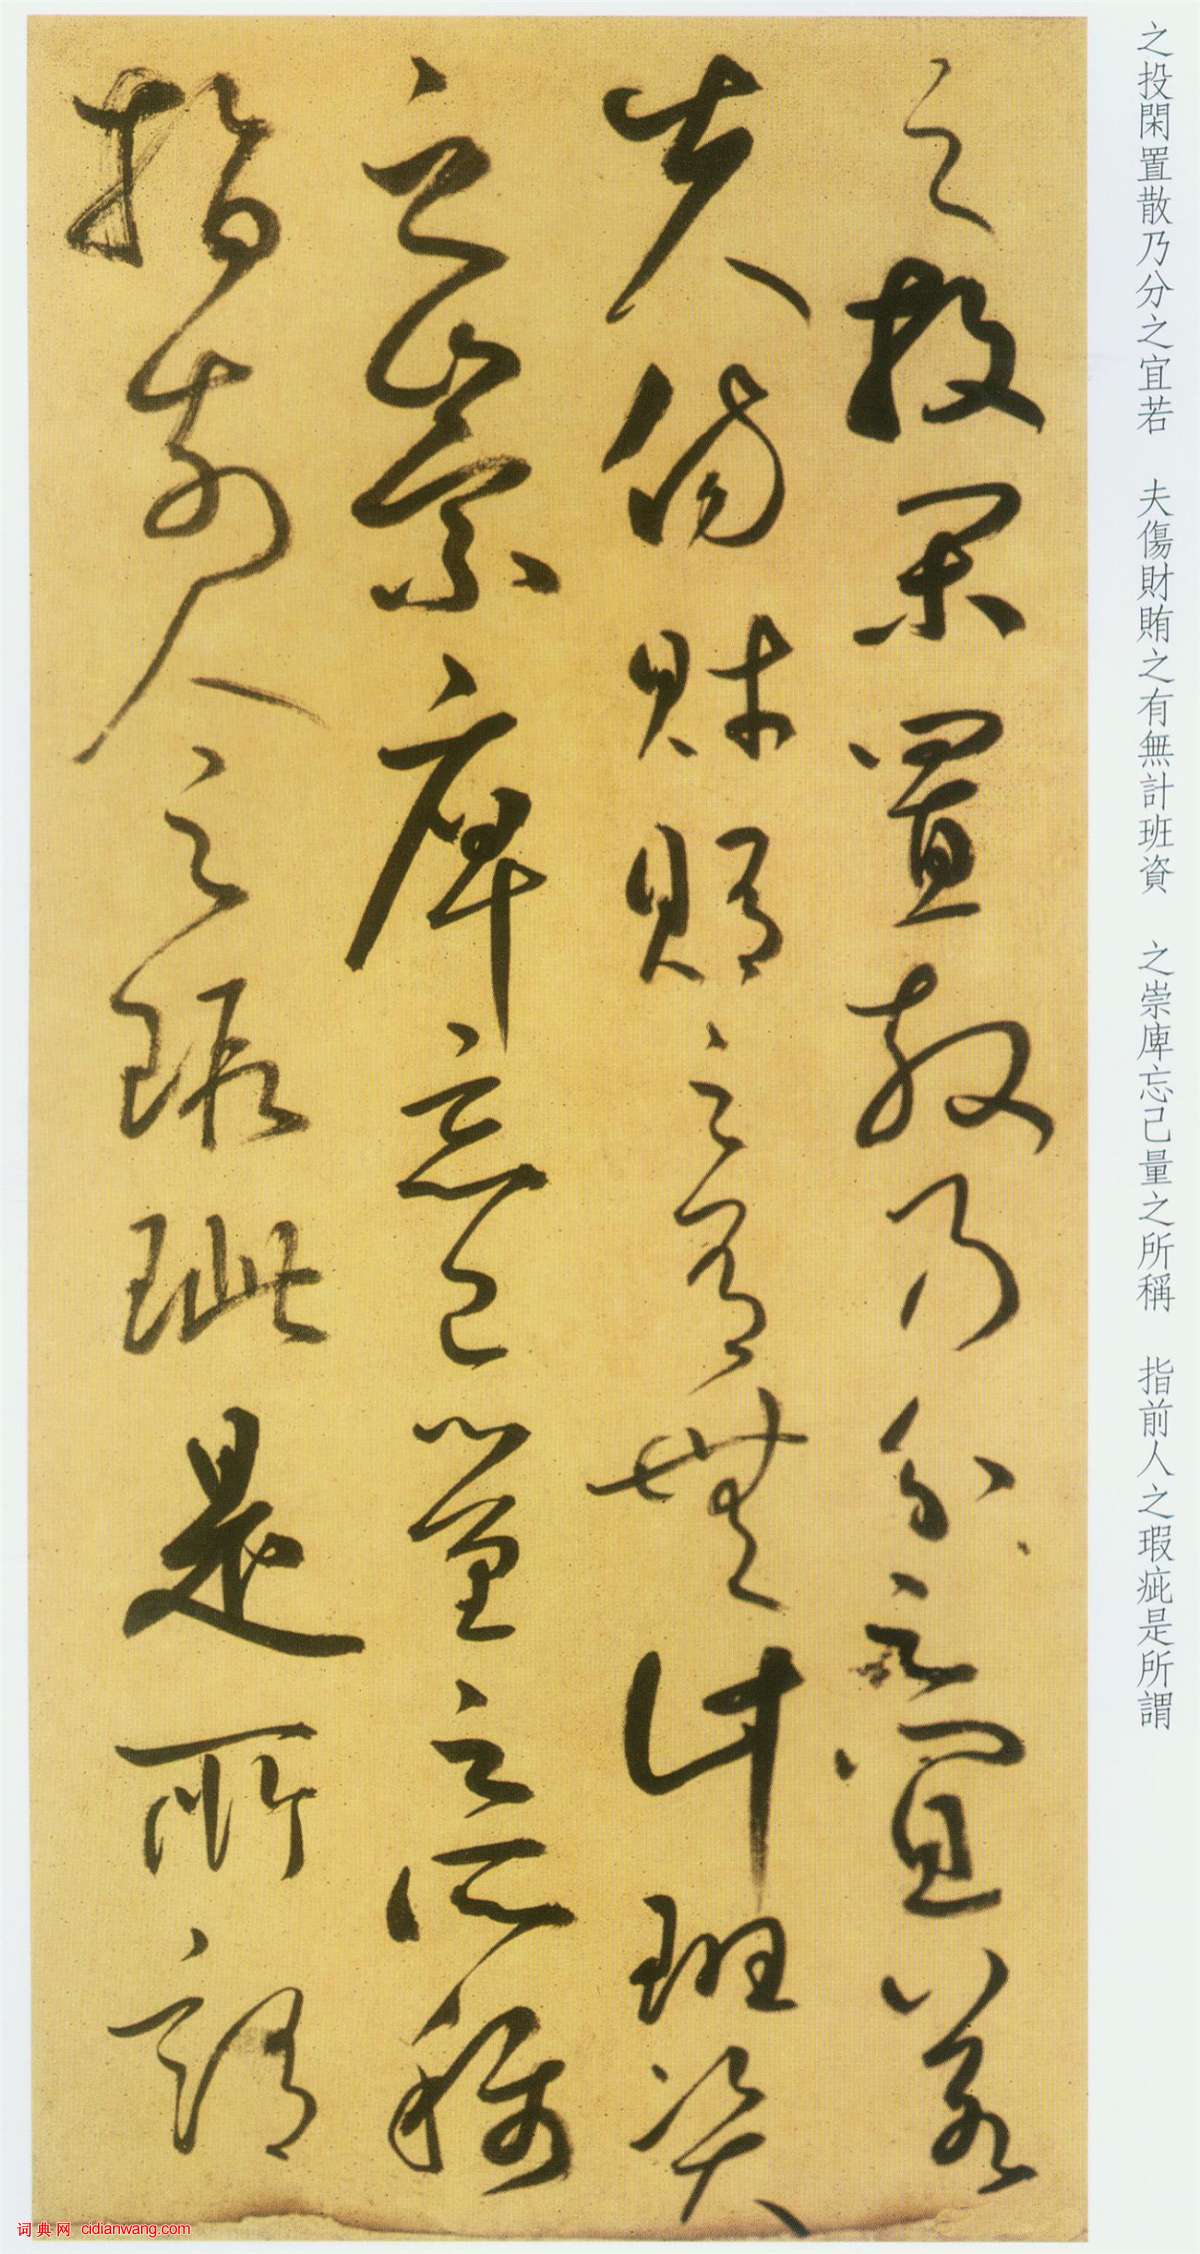 之投閑置散乃分之宜若　夫傷財賄之有無計班資　之崇庳忘己量之所稱　指前人之瑕疵是所謂
之投閑置散乃分之宜若
夫傷財賄之有無計班資
之崇庳忘己量之所稱
指前人之瑕疵是所謂
词典网 cidianwang.com